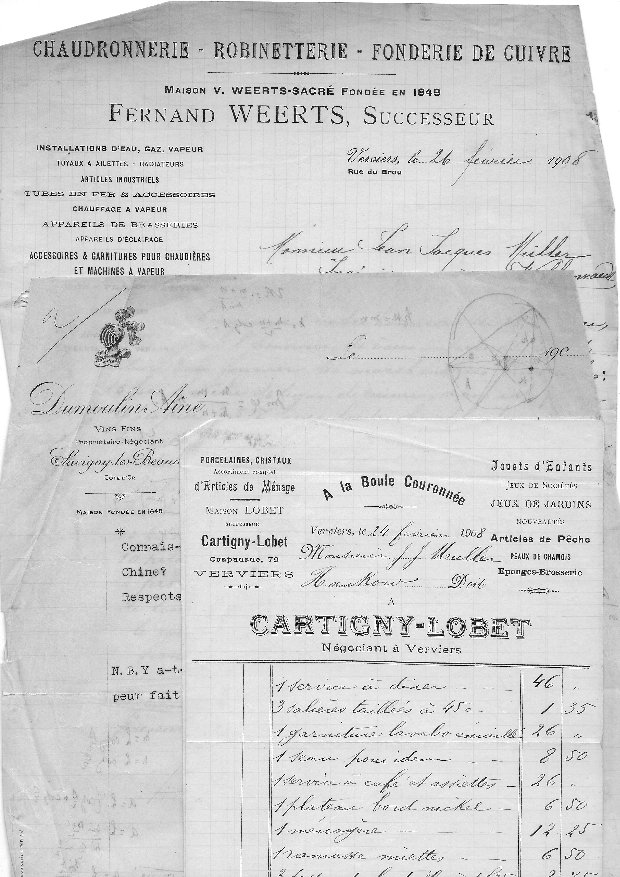 CHAUDRONNERIE - ROBINETTERIE - FONDERIE DE CUIVRE
MAISON V. WEERTS-SACRÉ FONDÉE EN 1849
FERNAND WEERTS, SUCCESSEUR
INSTALLATIONS D'EAU, GAZ, VAPEUR
TUYAUX A AILETTES - RADIATEURS
ARTICLES INDUSTRIELS
TUBES EN FER & ACCESSOIRES
CHAUFFAGE A VAPEUR
APPAREILS DE BRASSERIES
APPAREILS D'ÉCLAIRAGE
ACCESSOIRES & GARNITURES POUR CHAUDIÈRES
ET MACHINES A VAPEUR
Verviers, le 26 février 1908
Rue du Brou
Monsieur Jean Jacques Müller
Le 190
Dumoulin Aîné
VINS FINS
Propriétaire-Négociant
Savigny-les-Beaun
CÔTE-D'OR
MAISON FONDÉE EN 1848
Connais-
Chine?
Respects
N.B.Y a-t-
peur fait
PORCELAINES, CRISTAUX
Assortiment complet
d'Articles de Ménage
MAISON LOBET
SUCCESSEUR
Cartigny-Lobet
Crapaurue, 79
VERVIERS
A la Boule Couronnée
Jouets d'Enfants
JEUX DE SOCIÉTÉS
JEUX DE JARDINS
NOUVEAUTÉS
Articles de Pêche
PEAUX DE CHAMOIS
Eponges-Brosserie
Verviers, le 24 février 1908
Monsieur J J Muller
Doit
A
CARTIGNY-LOBET
Négociant à Verviers
1 service à diner 46 "
3 salières taillées à 45c 1 35
1 garniture lavabo émaillé 26 "
1 seau pour idem 8 50
1 service à café et assiettes 26 "
1 plateau bord nickel 6 50
1 ménagère 12 25
1 ramasse miettes 6 50